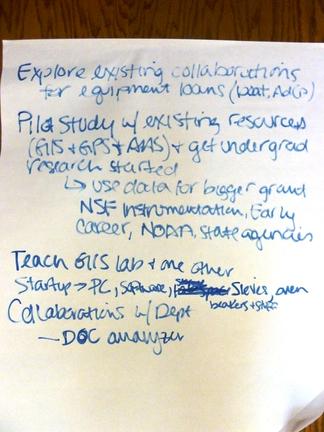 Explore existing collaborations
for equipment loans (boat, AdCP)
Pilot study w/ existing resources
(GIS + GPS + AAS) + get undergrad
research started
↳ use data for bigger grand
NSF Instrumentation, Early
career, NOAA, state agencies
Teach GIS lab + one other
Startup → PC, software, Sieves, oven
beakers + stuff
Collaborations w/ Dept
— DOC analyzer